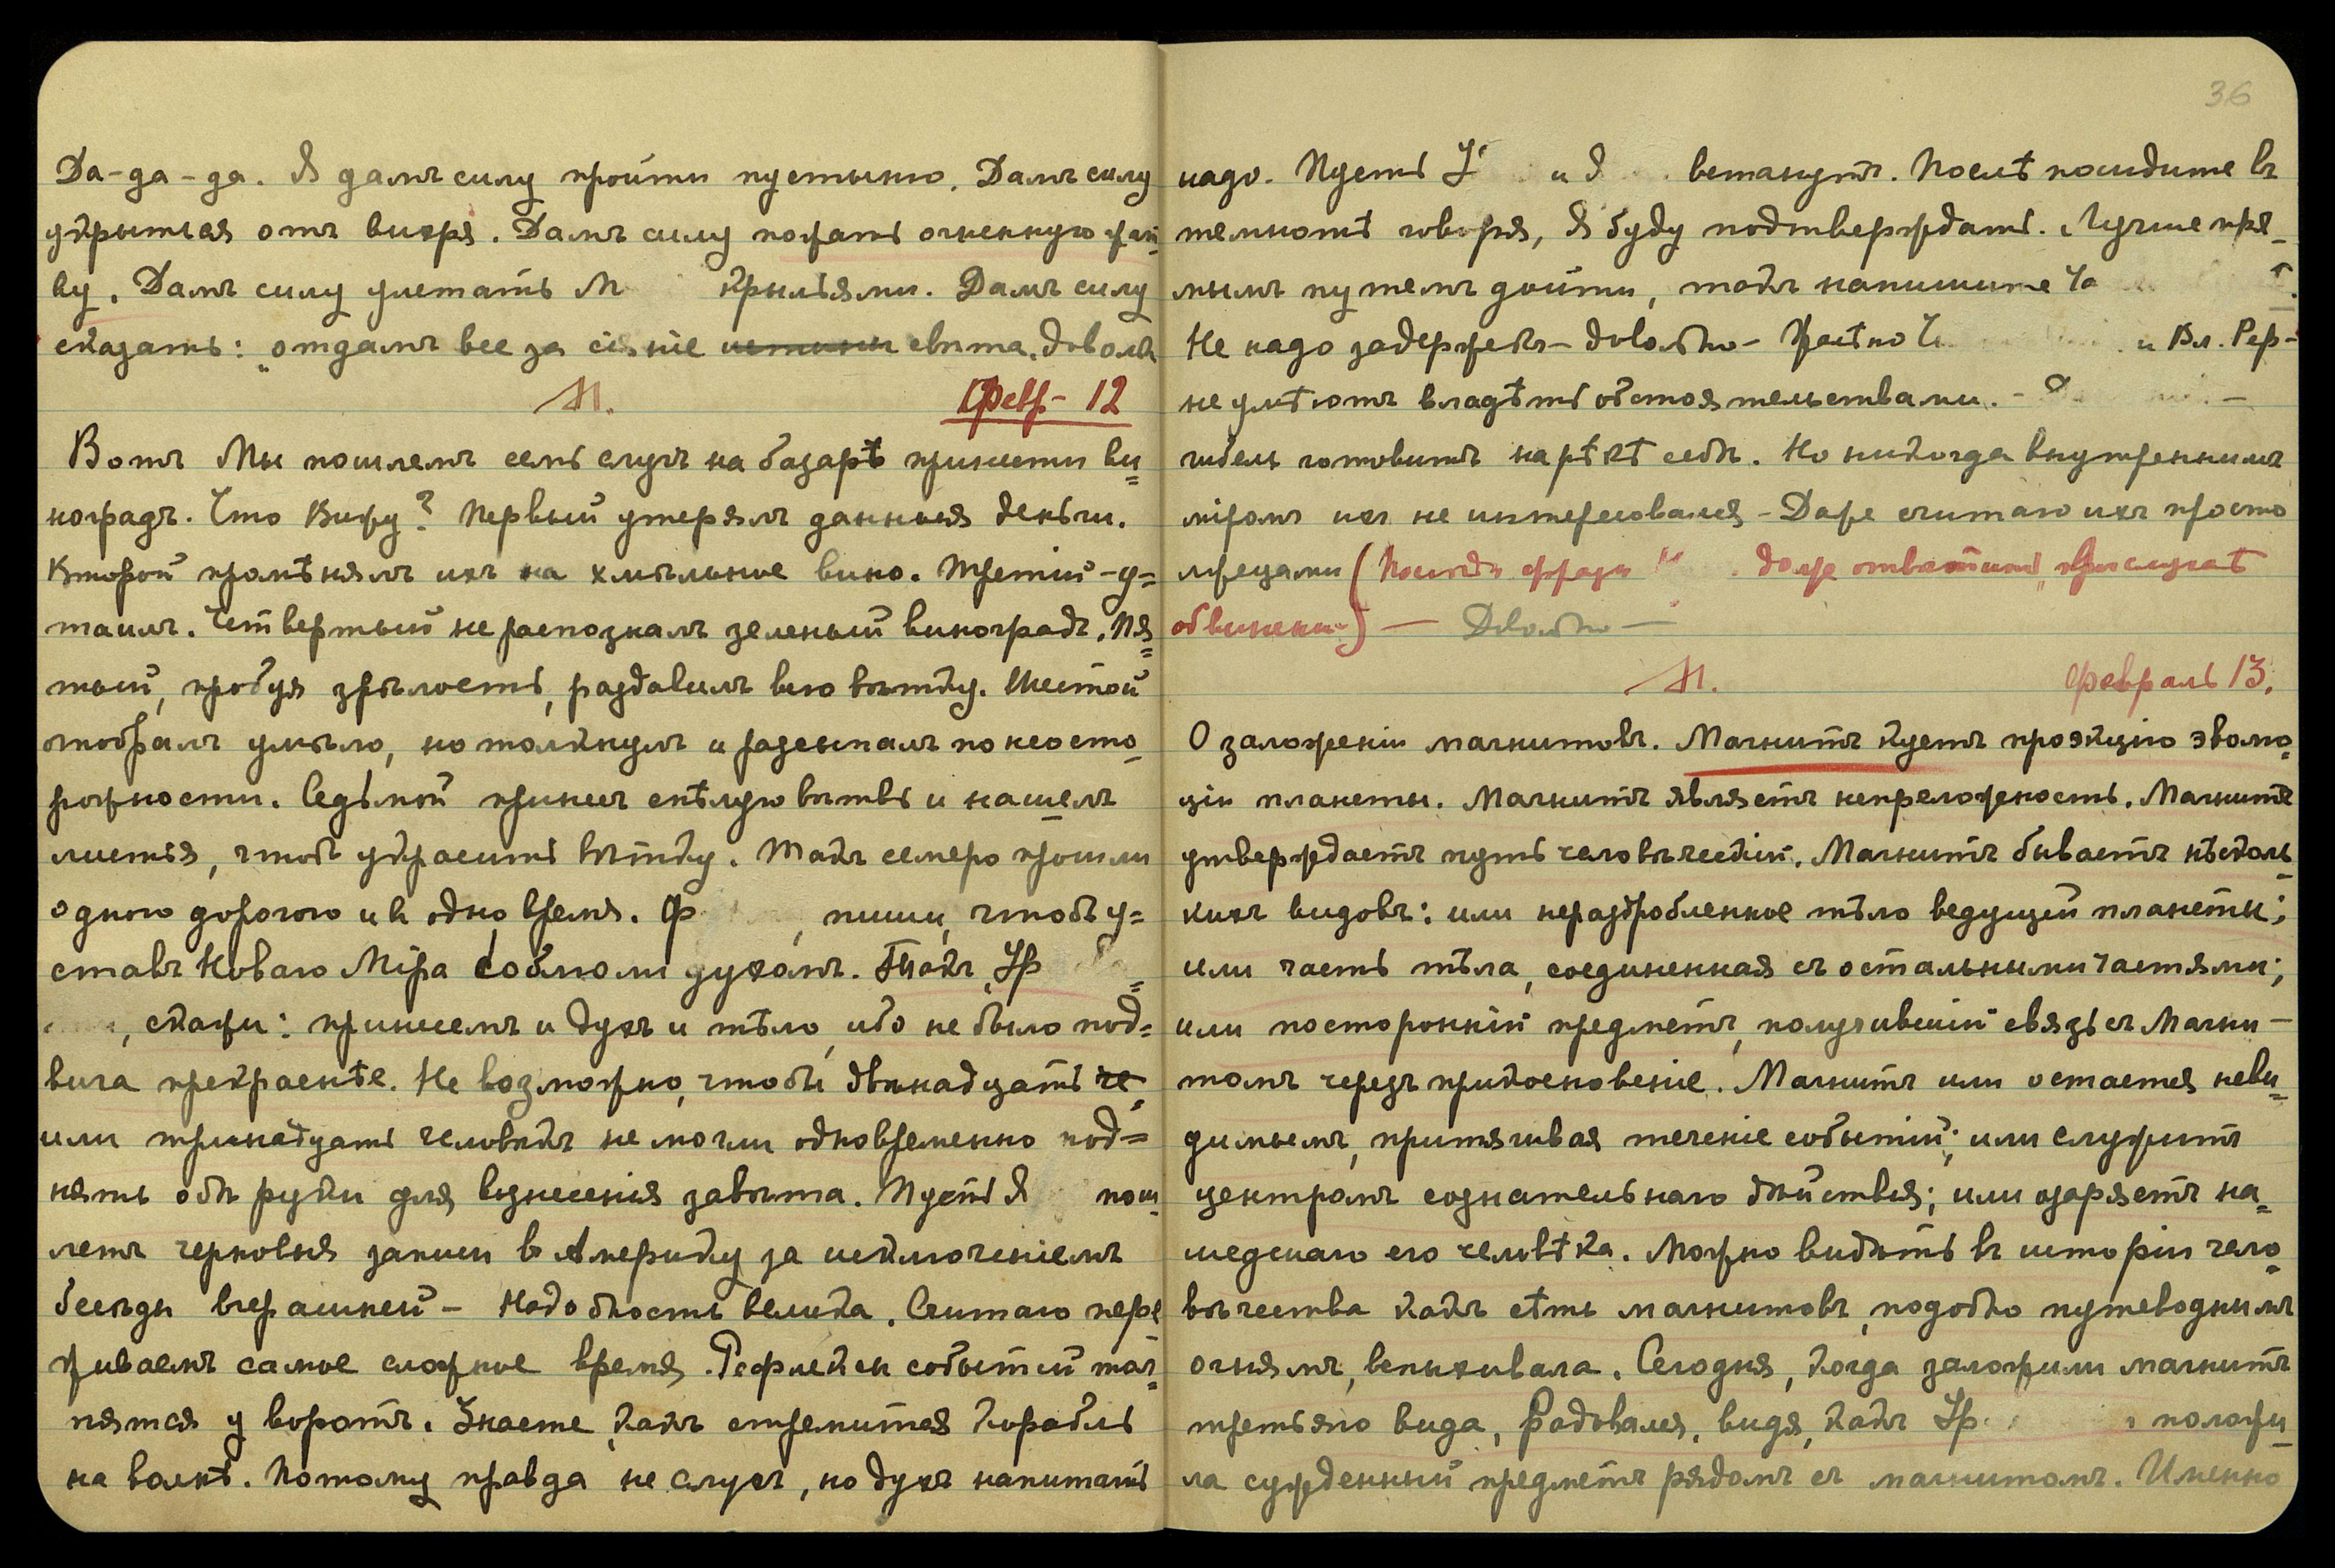 Да-да-да. Я далъ силу пройти пустыню. Далъ силу
укрыться отъ вихря. Далъ силу пожать огненную жат-
ву. Далъ силу улетать М крыльями. Далъ силу
сказать: „отдалъ все за сіяніе истины свѣта. Довольн
М. Февр- 12
Вотъ Мы пошлемъ семь слугъ на базаръ принести ви=
ноградъ. Что Вижу? Первый утерялъ данныя деньги.
Второй промѣнялъ ихъ на хмѣльное вино. Третій-у=
таилъ. Четвертый не распозналъ зеленый виноградъ. Пя=
тый, пробуя зрѣлость, раздавилъ всю вѣтку. Шестой
отобралъ умѣло, но толкнулъ и разсыпалъ по неосто-
рожности. Седьмой принесъ спѣлую вѣтвь и нашелъ
листья, чтобъ украсить вѣтку. Такъ семеро прошли
одною дорогою и въ одно время. Ф , пиши, чтобъ у=
ставъ Новаго Міра соблюли духомъ. Такъ, Ур =
, скажи: принесемъ и духъ и тѣло, ибо не было под=
вига прекраснѣе. Не возможно, чтобы двѣнадцать че
или тринадцать человѣкъ не могли одновременно под=
нять обѣ руки для вознесенія завѣта. Пусть Я пош-
летъ черновыя записи въ Америку за исключеніемъ
бесѣды вчерашней - Надобность велика. Считаю пере-
живаемъ самое сложное время. Рефлексы событій тол-
пятся у воротъ. Знаете, какъ стремится корабль
на волнѣ. Потому правда не слухъ, но духъ напитать
36
надо. Пусть У и Я встанутъ. Послѣ посидите въ
темнотѣ говоря, Я буду подтверждать. Лучше пря-
мымъ путемъ дойти, такъ напишите Ча
Не надо задержекъ - довольно - Жаѣно Ч и Вл. Реф-
не умѣютъ владѣть обстоятельствами. - -
гибель готовитъ на рѣкѣ себѣ. Но никогда внутреннимъ
міромъ ихъ не интересовался - Даже считаю ихъ просто
жрецами ( фразы должен отвѣтить,
обвинены) - Довольно -
М. Февраль 13.
О заложеніи магнитовъ. Магнитъ куетъ проэкцію эволю-
ціи планеты. Магнитъ являетъ непреложность. Магнитъ
утверждаетъ путь человѣческій. Магнитъ бываетъ нѣсколь-
кихъ видовъ: или нераздробленное тѣло ведущей планеты;
или часть тѣла, соединенная съ остальными частями;
или посторонній предметъ, получившій связь съ Магни-
томъ черезъ прикосновеніе. Магнитъ или остается неви=
димымъ, притягивая теченіе событій; или служитъ
центромъ сознательнаго дѣйствія; или озаряетъ на=
шедшаго его человѣка. Можно видѣть въ исторіи чело-
вѣчества какъ сѣть магнитовъ, подобно путеводнымъ
огнямъ, вспыхивала. Сегодня, когда заложили магнитъ
третьяго вида, Радовался, видя, какъ Ур положи-
ла сужденный предметъ рядомъ съ магнитомъ. Именно